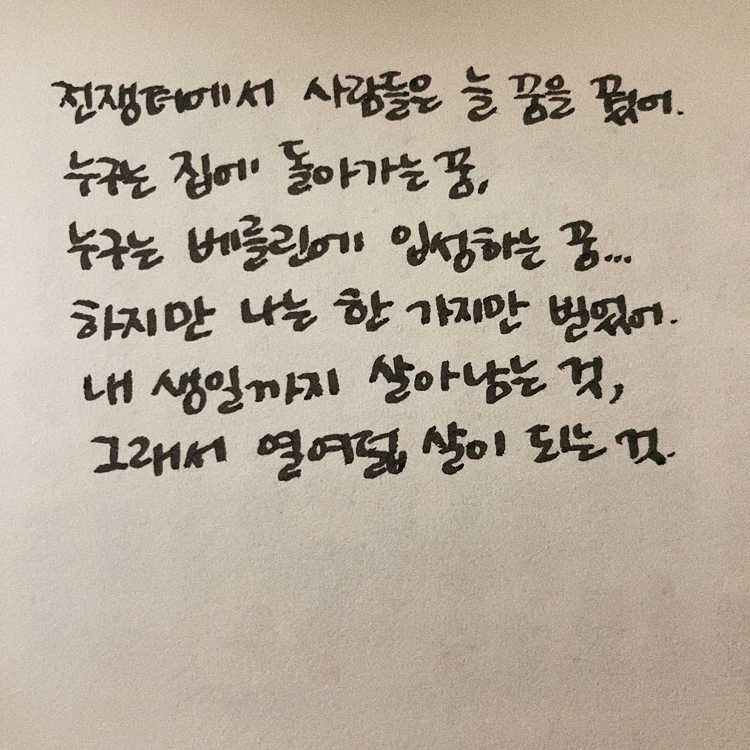 전쟁터에서 사람들은 늘 꿈을 꿨어.
누구는 집에 돌아가는 꿈,
누구는 베를린에 입성하는 꿈...
하지만 나는 한 가지만 빌었어.
내 생일까지 살아남는 것,
그래서 열여덟 살이 되는 것.